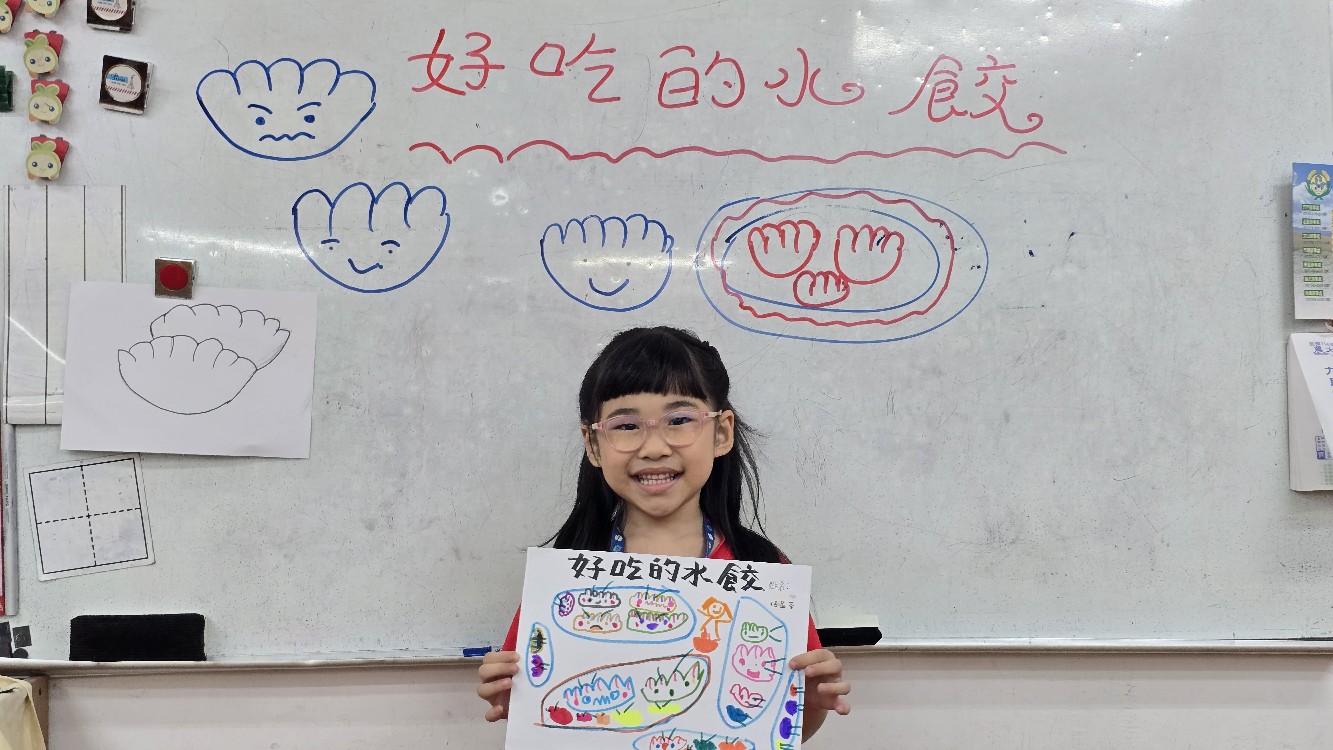 好吃的水餃
好吃的水餃